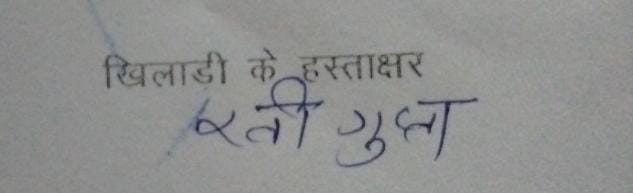 खिलाडी के हस्ताक्षर
रती गुप्ता